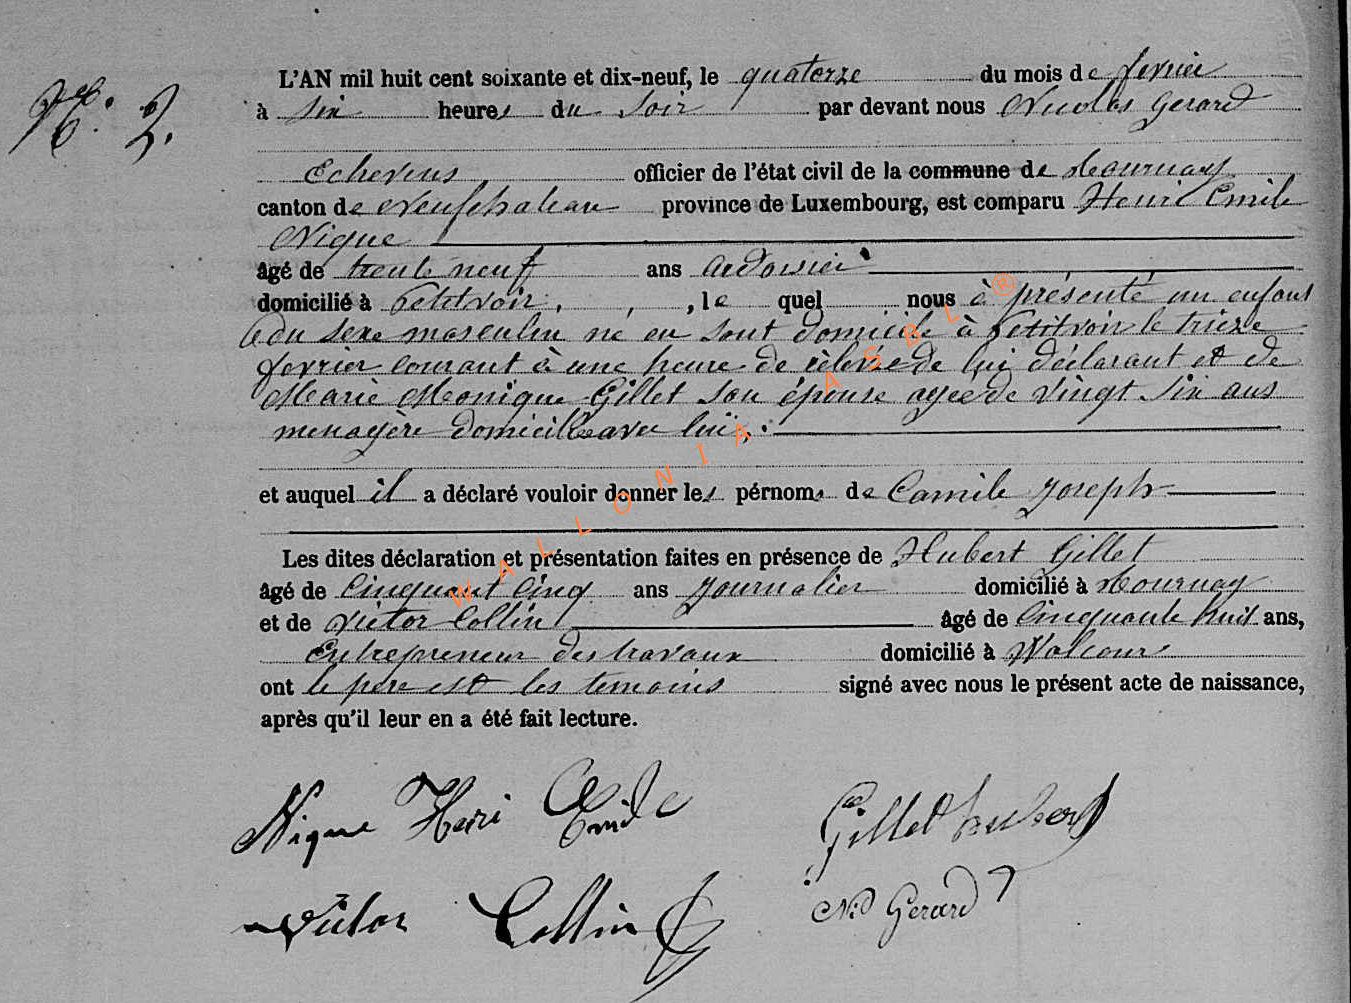 N° 2.
L'AN mil huit cent soixante et dix-neuf, le quatorze du mois de fevrier
à six heures du soir par devant nous Nicolas Gerard
Echevins officier de l'état civil de la commune de Tournay
canton de Neufchateau province de Luxembourg, est comparu Henri Emile
Nique
âgé de trente neuf ans ardoisier
domicilié à Petitvoir, , le quel nous à présenté un enfant
du sexe masculin né en sont domicile à Petitvoir le trieze
fevrier courant à une heure de relevée de lui déclarant et de
Marie Monique Gillet son épouse agée de vingt six ans
menagère domiciliée avec lui,
et auquel il a déclaré vouloir donner les pérnoms de Camile Joseph
Les dites déclaration et présentation faites en présence de Hubert Gillet
âgé de Cinquant Cinq ans Journalier domicilié à Tournay
et de Victor Collin âgé de Cinquante huit ans,
Entrepreneur des travaux domicilié à Wolcour
ont le père est les temoins signé avec nous le présent acte de naissance,
après qu'il leur en a été fait lecture.
Nique Henri Emile Gillet hubert
Victor Collin N. Gerard
WALLONIA ASBL ®